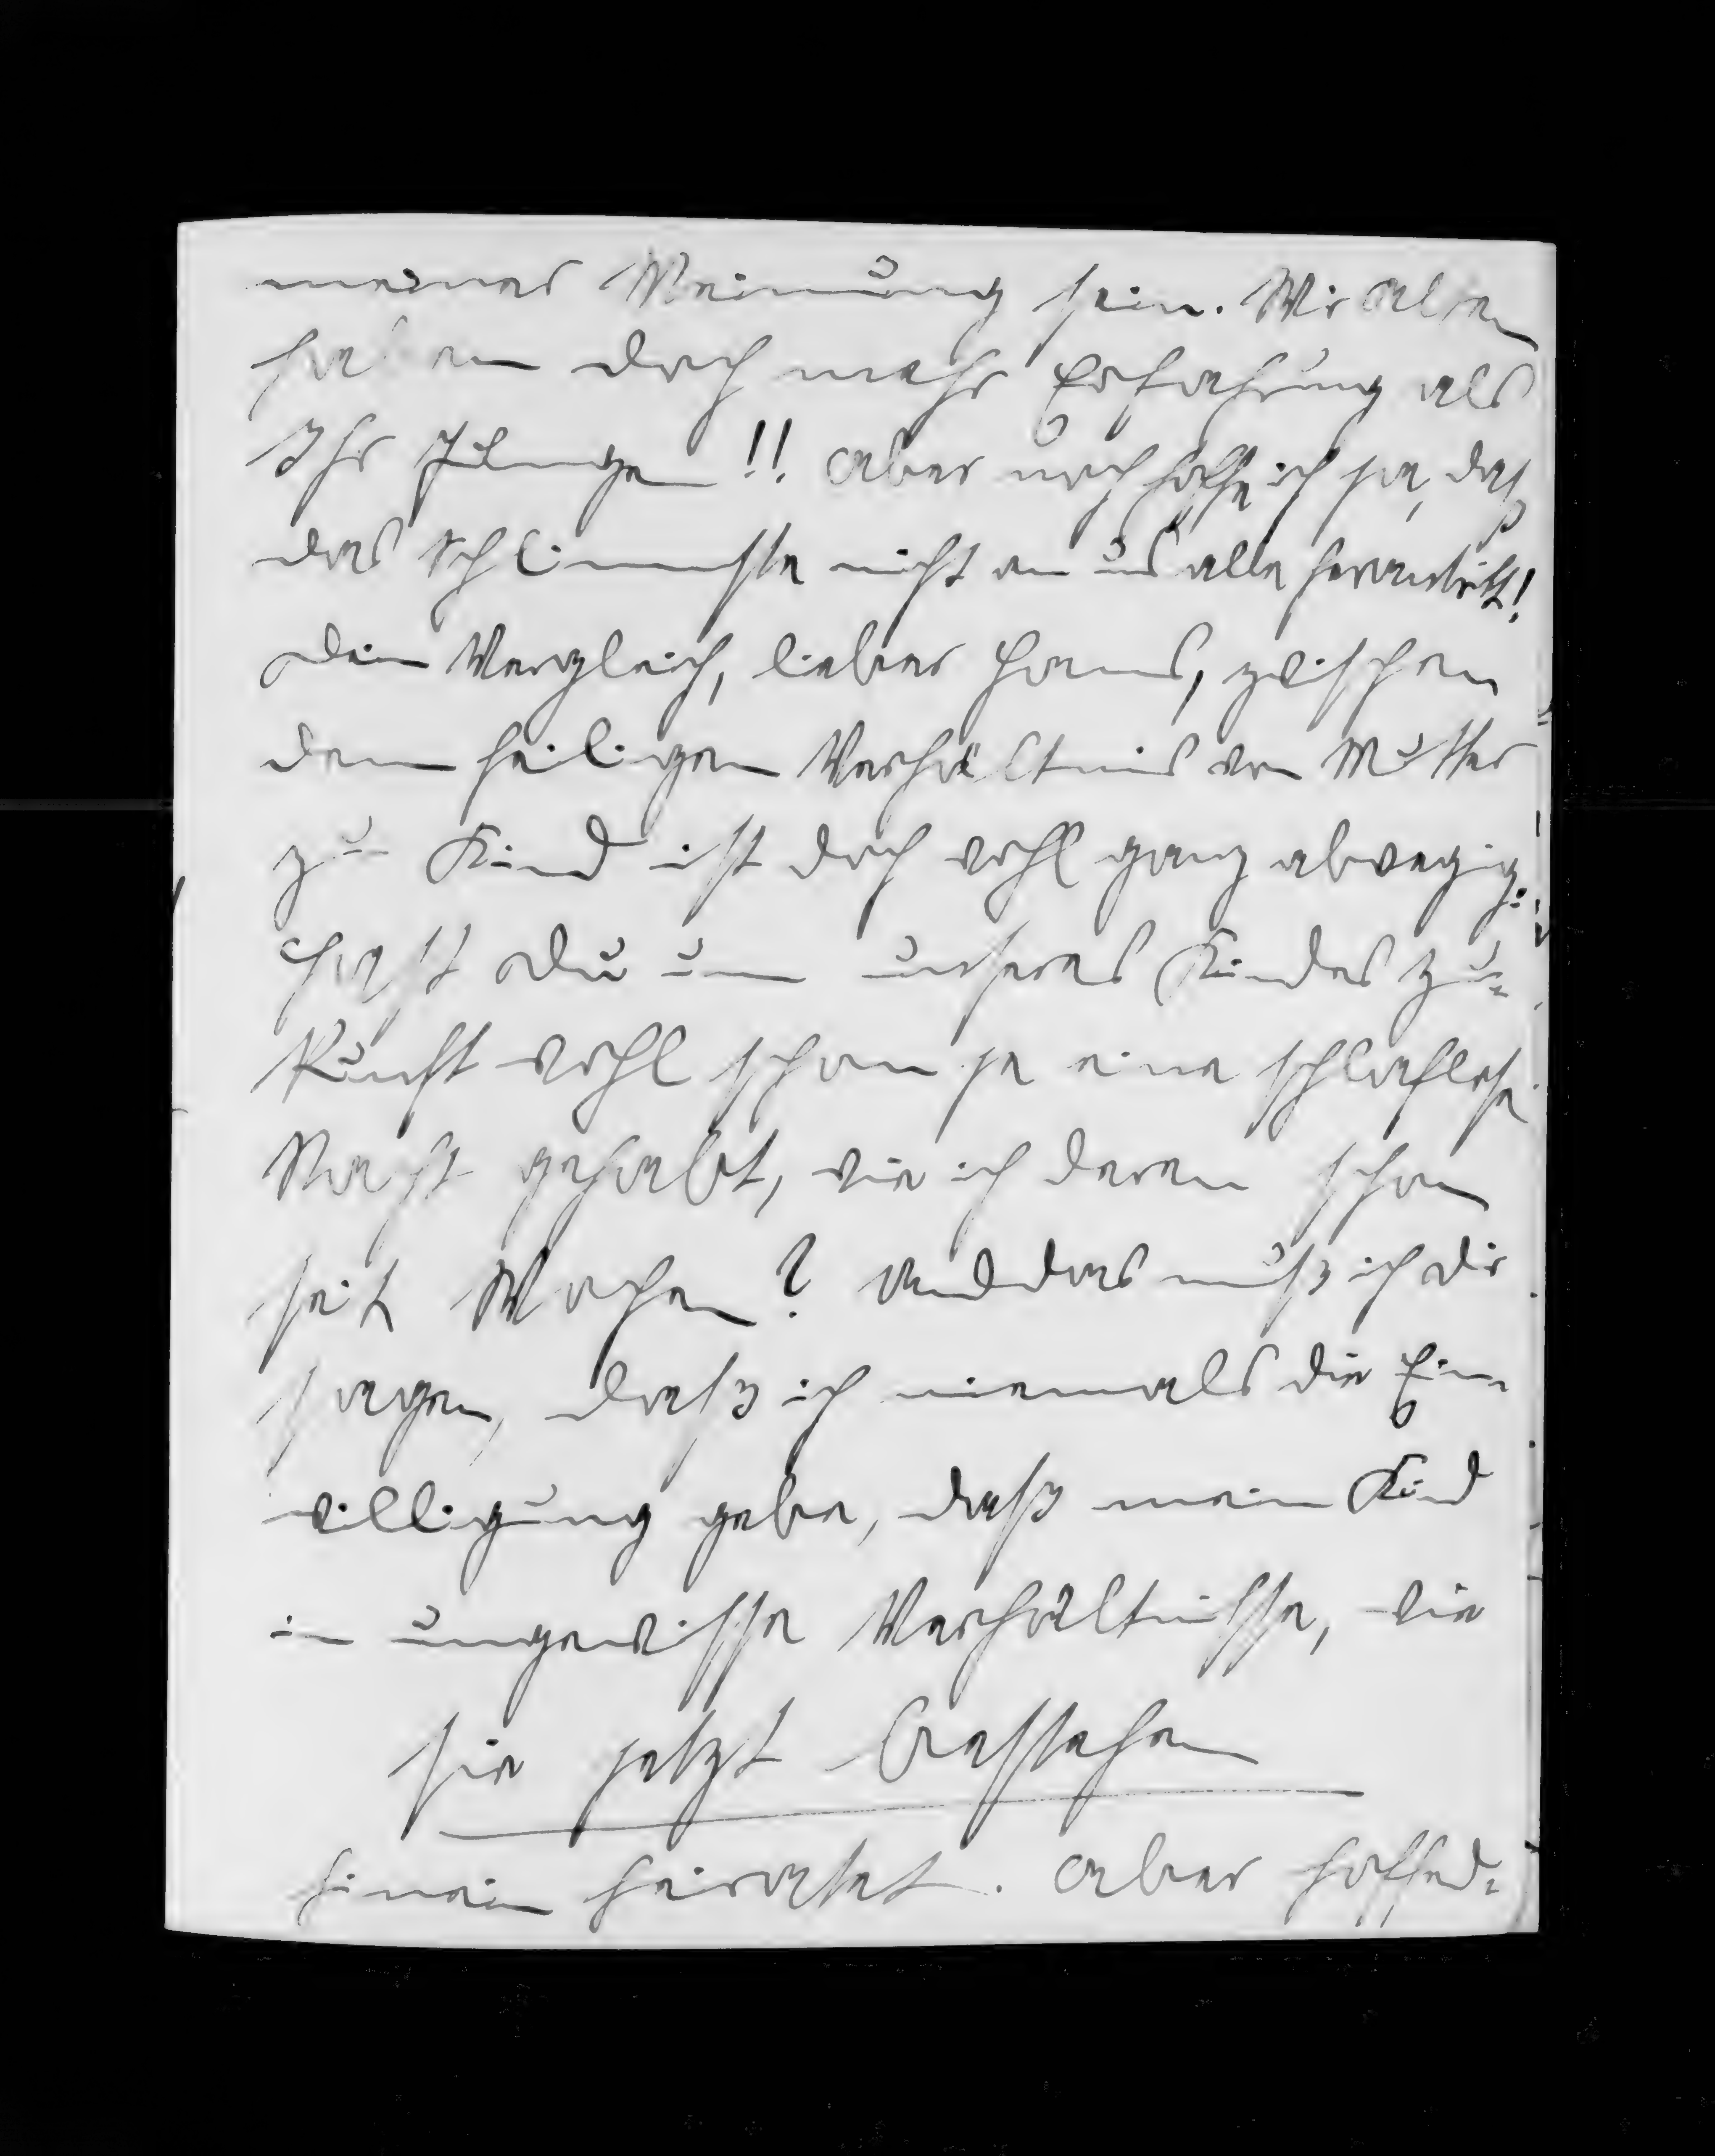 meiner Meinung sein. Wir Alten
haben doch mehr Erfahrung als
Ihr Jungen!! Aber noch hoffe ich ja, daß
das Schlimmste nicht an uns alle herantritt!
Dein Vergleich, lieber Hans, zwischen
dem heiligen Verhältnis von Mutter
zu Kind ist doch wohl ganz abwegig.
Hast Du um unseres Kindes Zu-
kunft wohl schon je eine schlaflose
Nacht gehabt, wie ich deren schon
seit Wochen? Und das muß ich Dir
sagen, daß ich niemals die Ein-
willigung gebe, daß mein Kind
in ungewisse Verhältnisse, wie
sie jetzt bestehen
hinein heiratet. Aber hoffend-